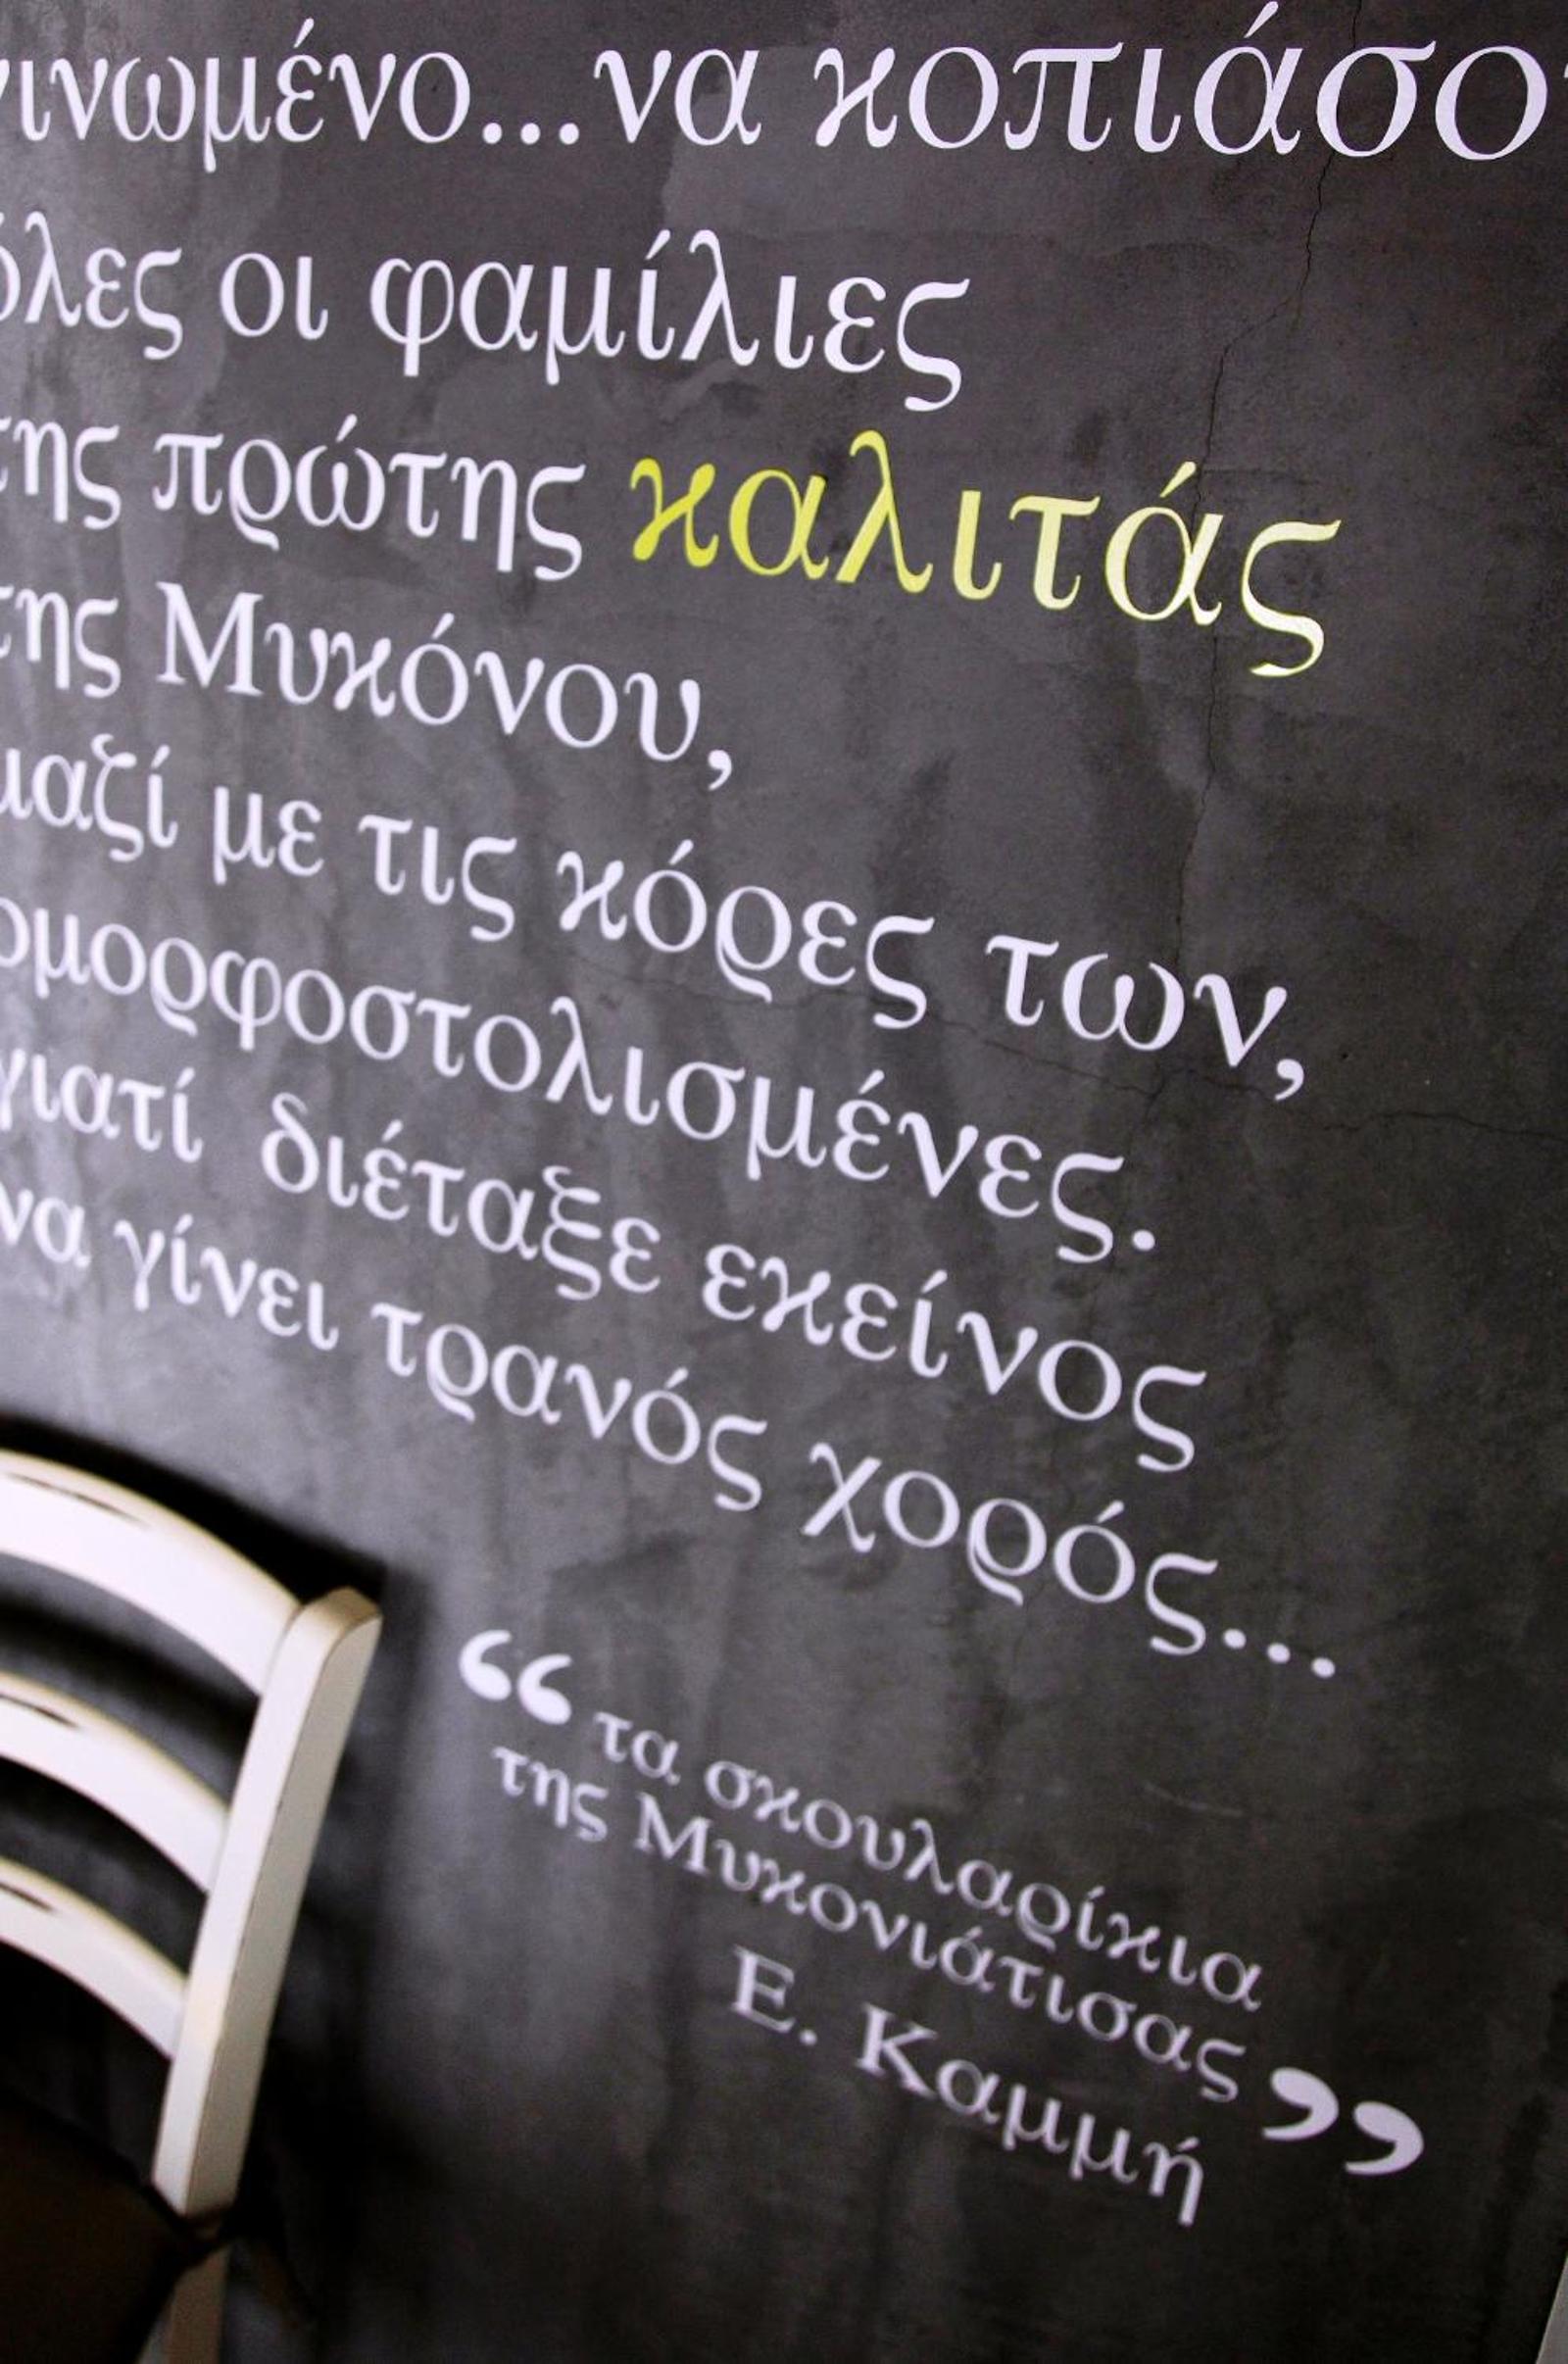 να
όλες οι φαμίλιες
της πρώτης καλιτάς
της Μυκόνου,
μαζί με τις κόρες των,
ομορφοστολισμένες.
γιατί διέταξε εκείνος
να γίνει τρανός χορός...
“ τα σκουλαρίκια
της Μυκονιάτισας ”
Ε. Καμμή